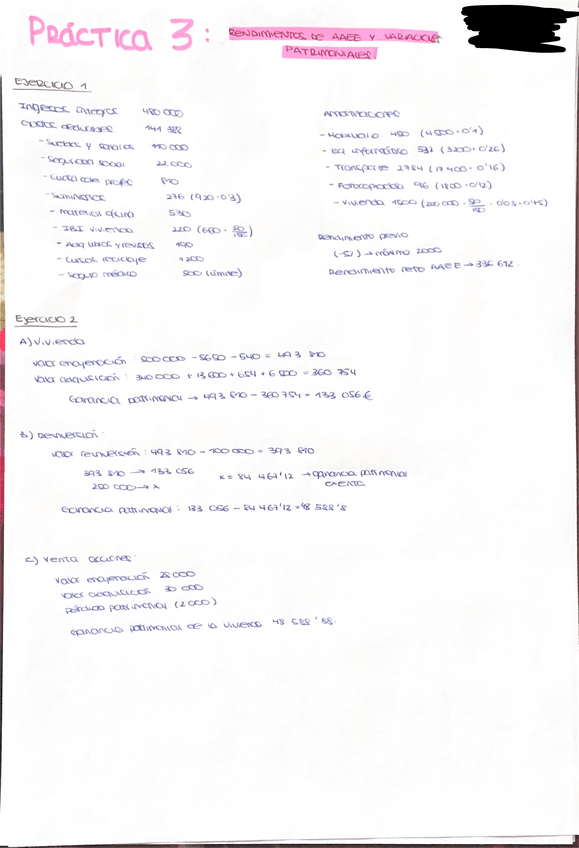 PRÁCTICA 3: RENDIMIENTOS DE AAEE Y VARIACIONES
PATRIMONIALES
EJERCICIO 1
Ingresos íntegros 480 000
Gastos deducibles 141 388
- Sueldos y salarios 110 000
- Seguridad social 22 000
- Cuota cole profes 810
- Suministros 276 (920·0'3)
- Material oficina 530
- IBI vivienda 220
- Adq libros y revistas 190
- Cursos reciclaje 1200
- Seguro médico 500 (límite)
AMORTIZACIONES
- Mobiliario 450 (4500·0'1)
- Eq informático 532
- Transporte 2784 (17 400·0'16)
- Fotocopiadora 96
- Vivienda 1500
Rendimiento previo
(-5%) → máximo 2000
Rendimiento neto AAEE → 336 612.
Ejercicio 2
A) Vivienda
Valor enajenación: 500 000 - 5650 - 540 = 493 810
Valor adquisición: 340 000 + 13 600 + 654 + 6 500 = 360 754
Ganancia patrimonial → 493 810 - 360 754 = 133 056 €
B) Reinversión:
Valor reinversión: 493 810 - 100 000 = 393 810
393 810 → 133 056
250 000 → x
x = 84 467'12 → ganancia patrimonial
exenta
Ganancia patrimonial: 133 056 - 84 467'12 = 48 588'8
C) Venta acciones:
Valor enajenación 28 000
Valor adquisición 30 000
Pérdida patrimonial (2 000)
Ganancia patrimonial de la vivienda 48 588'88.